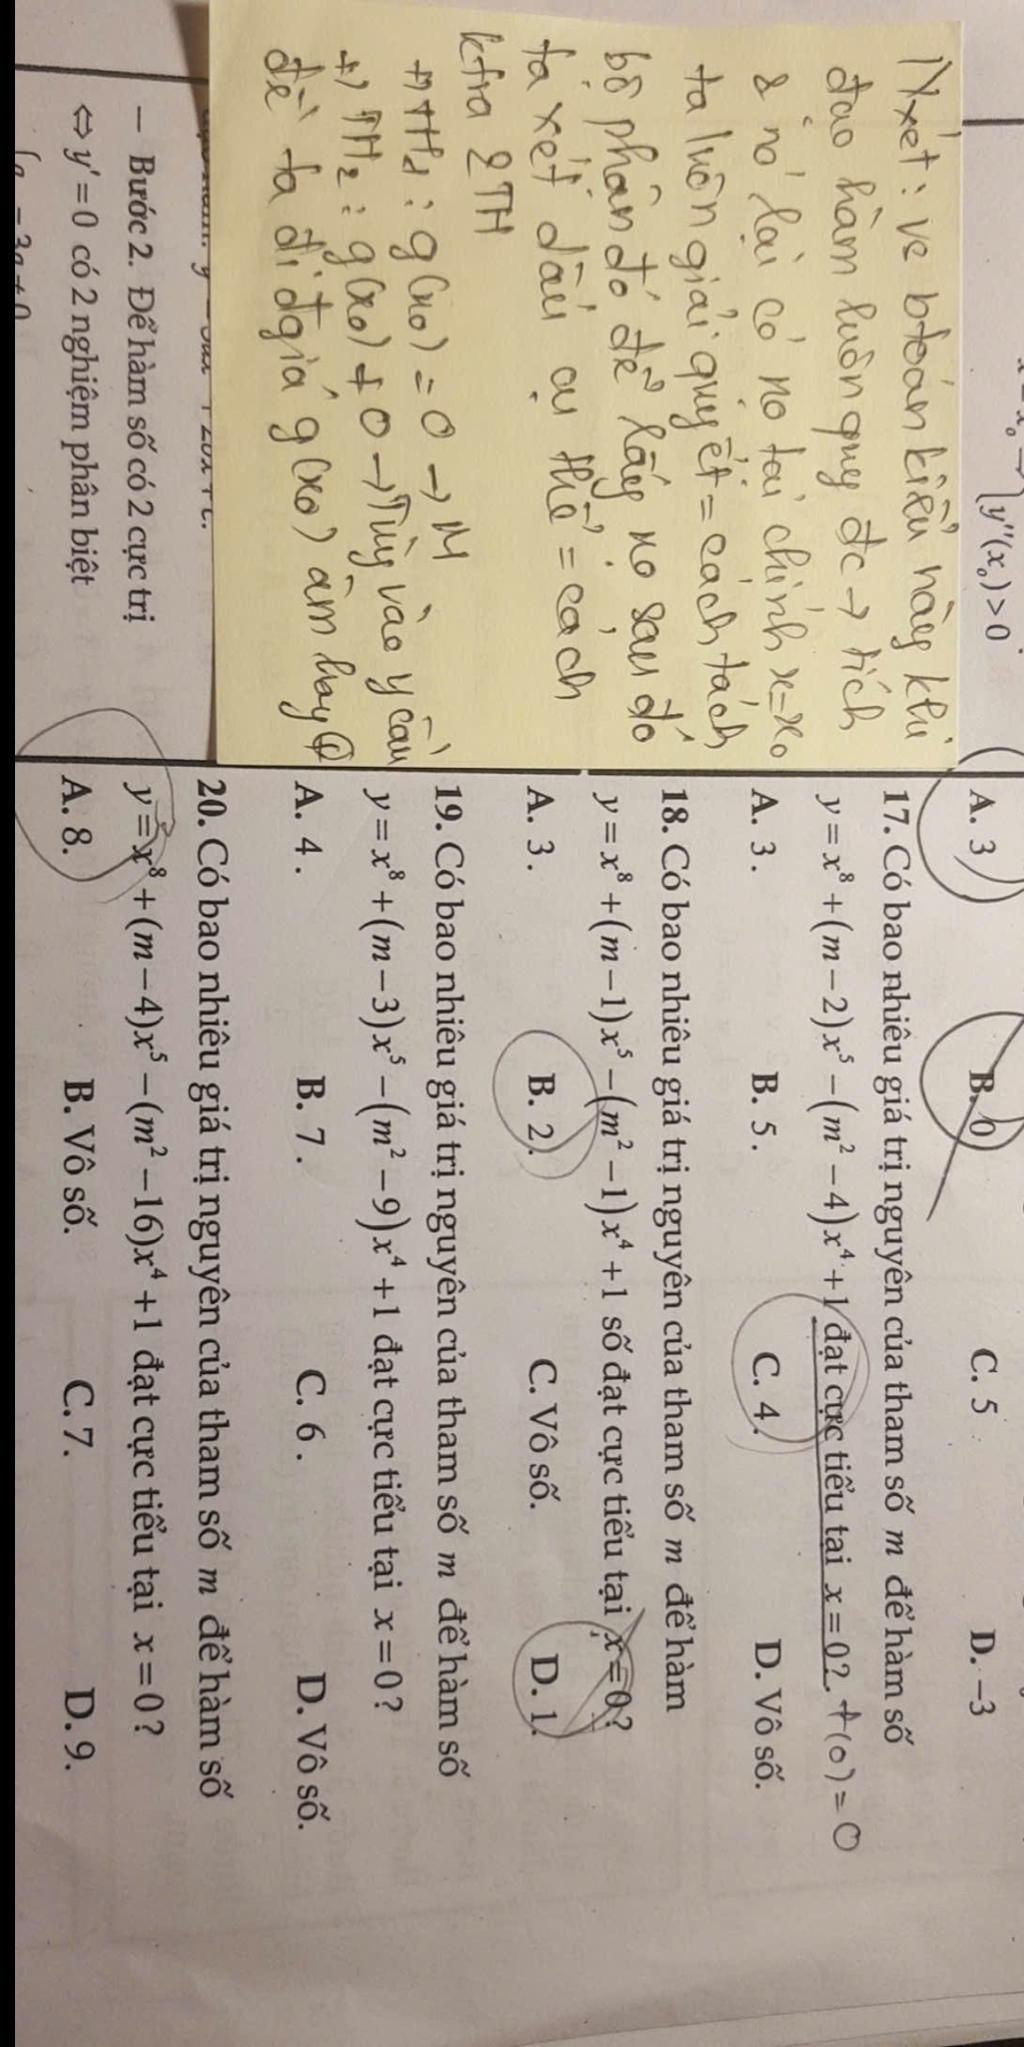 y''(x₀) > 0
1) Nxét: về btoán kiểu này khi
đạo hàm luôn quy đc → tích
& nó lại có no tại chính x=x₀
ta luôn giải quyết = cách tách
bộ phận đó để lấy no sau đó
ta xét dấu cụ thể = cách
ktra 2 TH
+) TH1: g(x₀) = 0 → M
+) TH2: g(x₀) ≠ 0 → Tùy vào y cầu
đề ta đi đgiá g(x₀) âm hay ⊕
– Bước 2. Để hàm số có 2 cực trị
⇔ y' = 0 có 2 nghiệm phân biệt
A. 3 B. 6 C. 5 D. -3
17. Có bao nhiêu giá trị nguyên của tham số m để hàm số
y = x⁸ + (m − 2)x⁵ − (m² − 4)x⁴ + 1 đạt cực tiểu tại x = 0?. f(0) = 0
A. 3. B. 5. C. 4. D. Vô số.
18. Có bao nhiêu giá trị nguyên của tham số m để hàm
y = x⁸ + (m − 1)x⁵ − (m² − 1)x⁴ + 1 số đạt cực tiểu tại x = 0?
A. 3. B. 2. C. Vô số. D. 1.
19. Có bao nhiêu giá trị nguyên của tham số m để hàm số
y = x⁸ + (m − 3)x⁵ − (m² − 9)x⁴ + 1 đạt cực tiểu tại x = 0?
A. 4. B. 7. C. 6. D. Vô số.
20. Có bao nhiêu giá trị nguyên của tham số m để hàm số
y = x⁸ + (m − 4)x⁵ − (m² − 16)x⁴ + 1 đạt cực tiểu tại x = 0?
A. 8. B. Vô số. C. 7. D. 9.